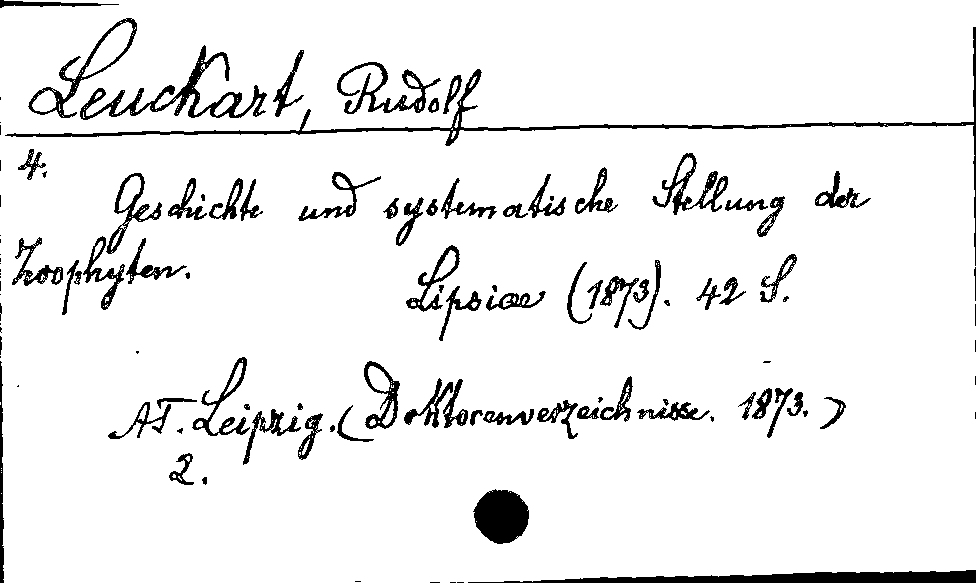 Leuckart, Rudolf
4.
Geschichte und systematische Stellung der
Zoophyten.
Lipsiae (1873). 42 S.
AT. Leipzig. (Doktorenverzeichnisse. 1873.)
2.